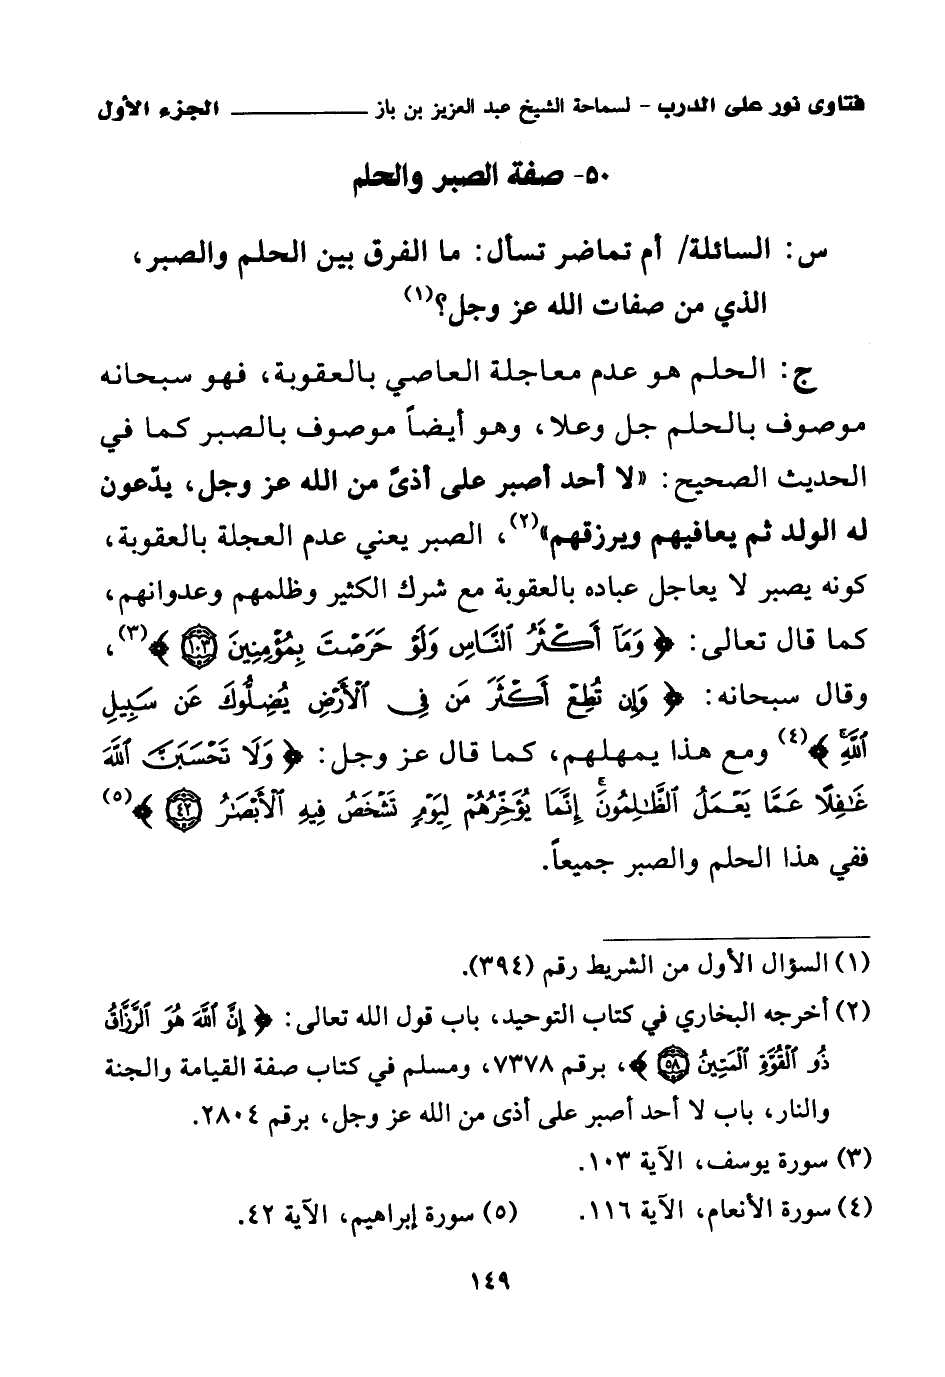 فتاوى نور على الدرب - لسماحة الشيخ عبد العزيز بن باز ــــــــــــ الجزء الأول
٥٠- صفة الصبر والحلم
س: السائلة/ أم تماضر تسأل: ما الفرق بين الحلم والصبر،
الذي من صفات الله عز وجل؟(١)
ج: الحلم هو عدم معاجلة العاصي بالعقوبة، فهو سبحانه
موصوف بالحلم جل وعلا، وهو أيضاً موصوف بالصبر كما في
الحديث الصحيح: «لا أحد أصبر على أذىً من الله عز وجل، يدّعون
له الولد ثم يعافيهم ويرزقهم»(٢)، الصبر يعني عدم العجلة بالعقوبة،
كونه يصبر لا يعاجل عباده بالعقوبة مع شرك الكثير وظلمهم وعدوانهم،
كما قال تعالى: ﴿ وَمَآ أَكْثَرُ ٱلنَّاسِ وَلَوْ حَرَصْتَ بِمُؤْمِنِينَ ١٠٣ ﴾(٣)،
وقال سبحانه: ﴿ وَإِن تُطِعْ أَكْثَرَ مَن فِى ٱلْأَرْضِ يُضِلُّوكَ عَن سَبِيلِ
ٱللَّهِ ۚ ﴾(٤) ومع هذا يمهلهم، كما قال عز وجل: ﴿ وَلَا تَحْسَبَنَّ ٱللَّهَ
غَٰفِلًا عَمَّا يَعْمَلُ ٱلظَّٰلِمُونَ ۚ إِنَّمَا يُؤَخِّرُهُمْ لِيَوْمٍ تَشْخَصُ فِيهِ ٱلْأَبْصَٰرُ ٤٢ ﴾(٥)
ففي هذا الحلم والصبر جميعاً.
(١) السؤال الأول من الشريط رقم (٣٩٤).
(٢) أخرجه البخاري في كتاب التوحيد، باب قول الله تعالى: ﴿ إِنَّ ٱللَّهَ هُوَ ٱلرَّزَّاقُ
ذُو ٱلْقُوَّةِ ٱلْمَتِينُ ٥٨ ﴾، برقم ٧٣٧٨، ومسلم في كتاب صفة القيامة والجنة
والنار، باب لا أحد أصبر على أذى من الله عز وجل، برقم ٢٨٠٤.
(٣) سورة يوسف، الآية ١٠٣.
(٤) سورة الأنعام، الآية ١١٦. (٥) سورة إبراهيم، الآية ٤٢.
١٤٩